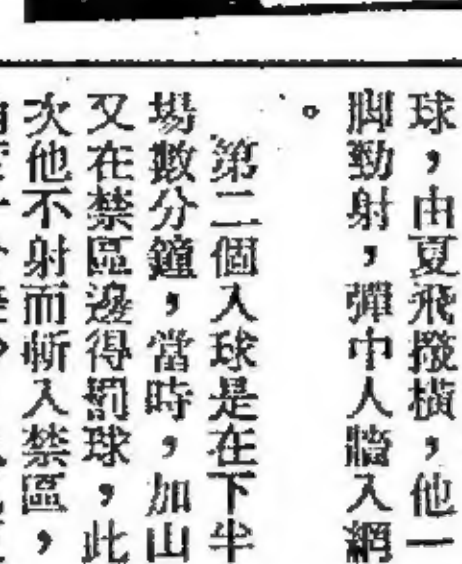 球，由夏飛撥橫，他一
脚勁射，彈中人牆入網
。
第二個入球是在下半
場數分鐘，當時，加山
又在禁區邊得罰球，此
次他不射而斬入禁區，